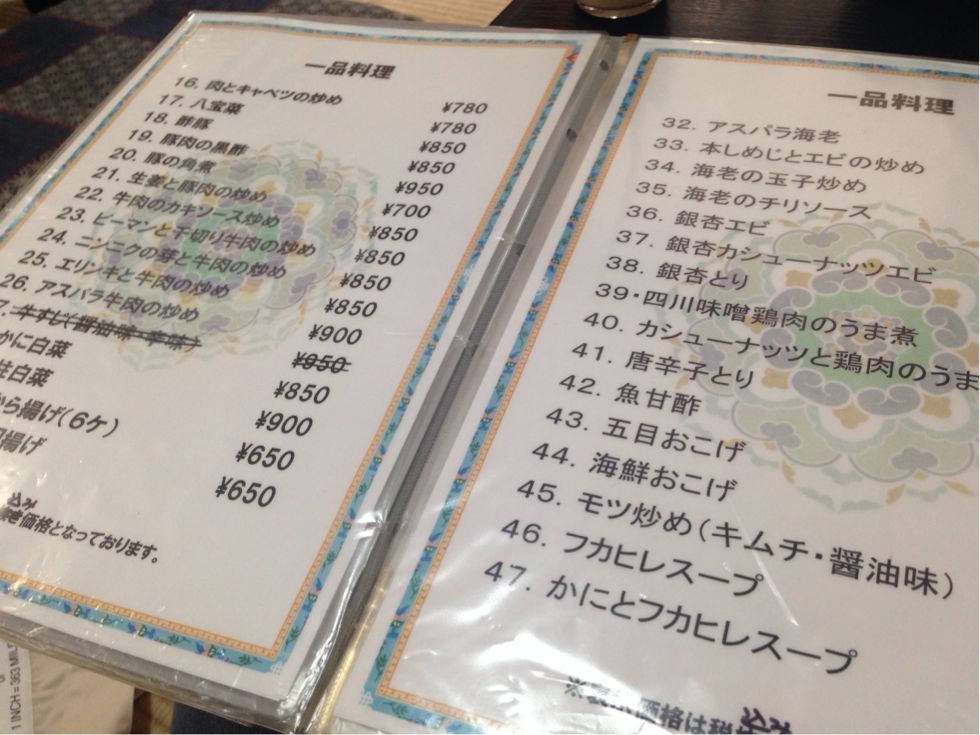 一品料理
16. 肉とキャベツの炒め ¥780
17. 八宝菜 ¥780
18. 酢豚 ¥850
19. 豚肉の黒酢 ¥850
20. 豚の角煮 ¥950
21. 生姜と豚肉の炒め ¥700
22. 牛肉のカキソース炒め ¥850
23. ピーマンと千切り牛肉の炒め ¥850
24. ニンニクの芽と牛肉の炒め ¥850
25. エリンギと牛肉の炒め ¥850
26. アスパラ牛肉の炒め ¥900
7. 牛すじ(醤油味・辛味) ¥950
かに白菜 ¥850
柱白菜 ¥900
から揚げ(6ケ) ¥650
揚げ ¥650
込み
価格となっております。
一品料理
32. アスパラ海老
33. 本しめじとエビの炒め
34. 海老の玉子炒め
35. 海老のチリソース
36. 銀杏エビ
37. 銀杏カシューナッツエビ
38. 銀杏とり
39・四川味噌鶏肉のうま煮
40. カシューナッツと鶏肉のうま
41. 唐辛子とり
42. 魚甘酢
43. 五目おこげ
44. 海鮮おこげ
45. モツ炒め(キムチ・醤油味)
46. フカヒレスープ
47. かにとフカヒレスープ
込み
価格は税
1 INCH = 363 MILE